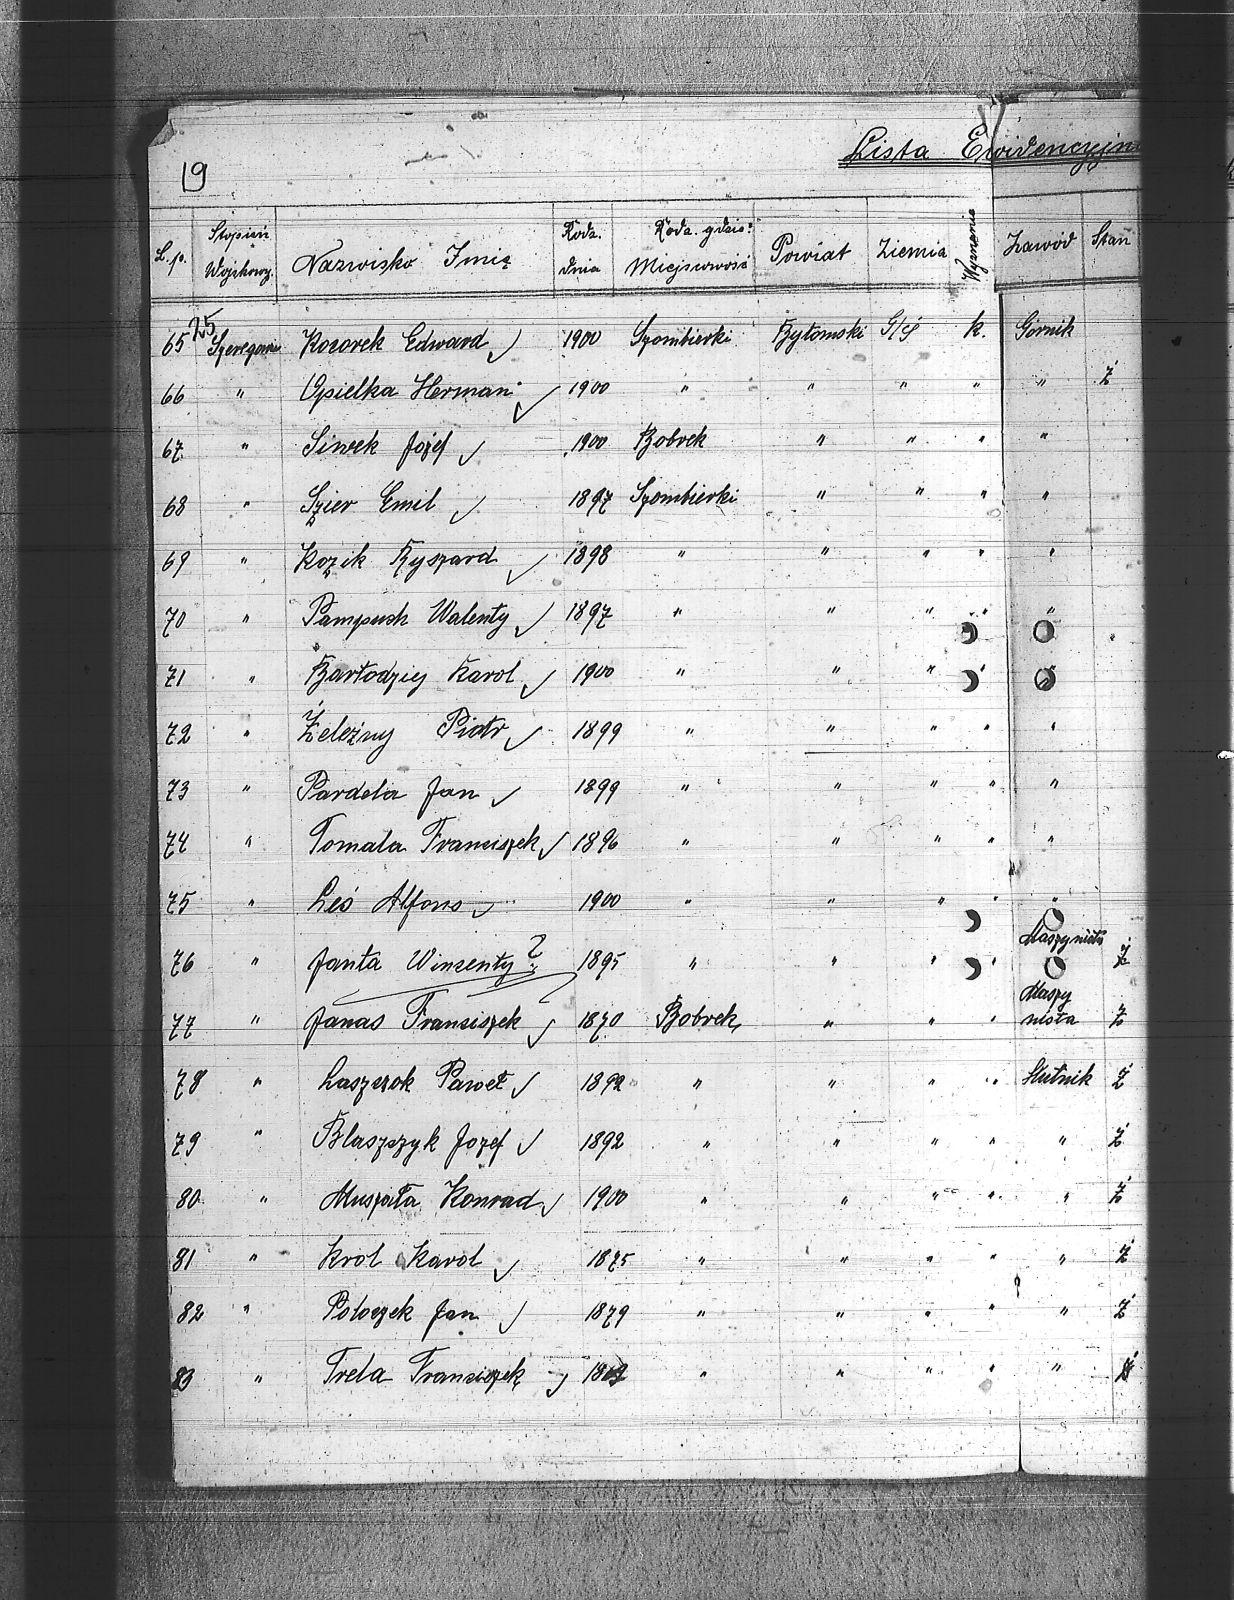 19
Lista Ewidencyjn
L.p. Stopień Wojskowy. Nazwisko Imię Rodz. dnia Rodz. gdzie: Miejscowość Powiat Ziemia Wyznanie Zawód Stan
25
65 Szeregowiec Kozorek Edward 1900 Szombierki Bytomski G/Śl k. Górnik
66 " Opielka Herman 1900 " " " " " Ż
67 " Siwek Józef 1900 Bobrek " " " "
68 " Szier Emil 1897 Szombierki " " " "
69 " Kozik Ryszard 1898 " " " " "
70 " Pampuch Walenty 1897 " " " " "
71 " Bartodziej Karol 1900 " " " " "
72 " Żeleźny Piotr 1899 " " " " "
73 " Pardela Jan 1899 " " " " "
74 " Tomala Franciszek 1896 " " " " "
75 " Leś Alfons 1900 " " " " "
76 " Janta Winzenty? 1895 " " " " Maszynista Ż
77 " Janas Franciszek 1870 Bobrek " " " Maszynista Ż
78 " Laszczok Paweł 1892 " " " " Hutnik Ż
79 " Blaszczyk Józef 1892 " " " " " Ż
80 " Muszała Konrad 1900 " " " " " Ż
81 " Krol Karol 1875 " " " " " Ż
82 " Poloczek Jan 1879 " " " " " Ż
83 " Trela Franciszek " " " " "